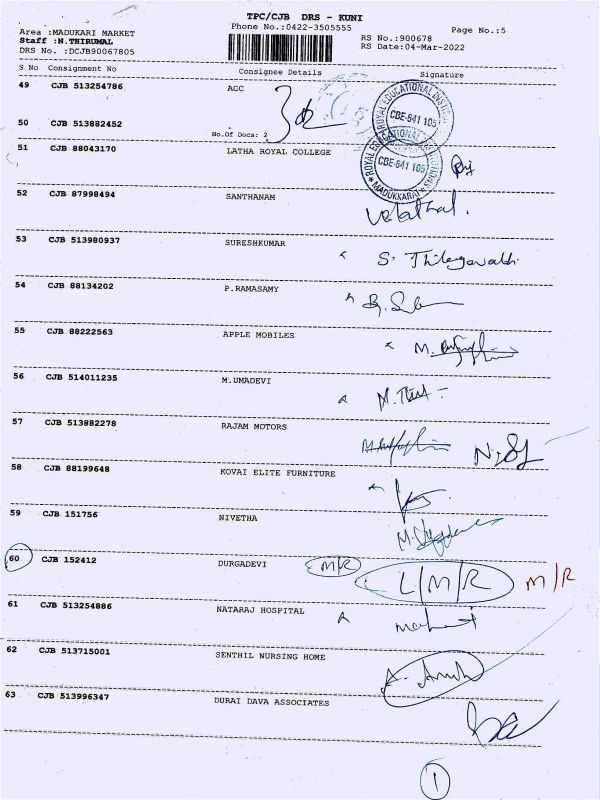 TPC/CJB DRS - KUNI
Phone No.:0422-3505555
Page No.:5
Area :MADUKARI MARKET
Staff :N.THIRUMAL
DRS No. :DCJB90067805
RS No.:900678
RS Date:04-Mar-2022
S No Consignment No Consignee Details Signature
49 CJB 513254786 ACC
50 CJB 513882452
No.Of Docs: 2
ROYAL EDUCATIONAL
CBE-641 105
51 CJB 88043170 LATHA ROYAL COLLEGE
CBE-641 105
MADUKKARAI
52 CJB 87998494 SANTHANAM
53 CJB 513980937 SURESHKUMAR
54 CJB 88134202 P.RAMASAMY
55 CJB 88222563 APPLE MOBILES
56 CJB 514011235 M.UMADEVI
57 CJB 513882278 RAJAM MOTORS
58 CJB 88199648 KOVAI ELITE FURNITURE
59 CJB 151756 NIVETHA
60 CJB 152412 DURGADEVI M/R L/M/R M/R
61 CJB 513254886 NATARAJ HOSPITAL
62 CJB 513715001 SENTHIL NURSING HOME
63 CJB 513996347 DURAI DAVA ASSOCIATES
1